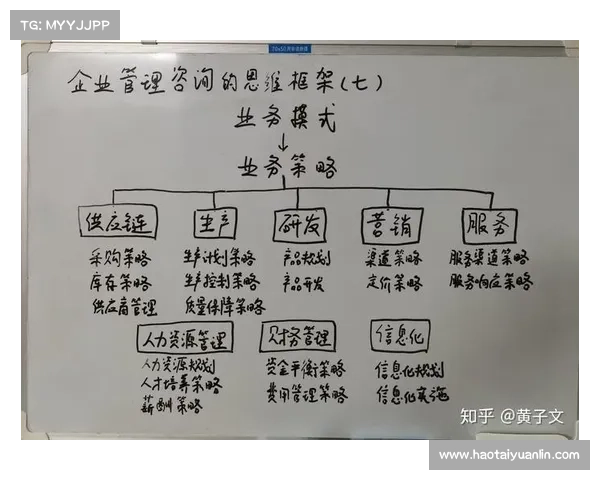 TG: MYYJJPP
企业管理咨询的思维框架(七)
业务模式
↓
业务策略
供应链 生产 研发 营销 服务
采购策略 生产计划策略 产品规划 渠道策略 服务渠道策略
库存策略 生产控制策略 产品开发 定价策略 服务响应策略
供应商管理 质量保障策略
人力资源管理 财务管理 信息化
人力资源规划 资金平衡策略 信息化规划
人才培养策略 费用管理策略 信息化实施
薪酬策略
知乎 @黄子文
www.haotaiyuanlin.com